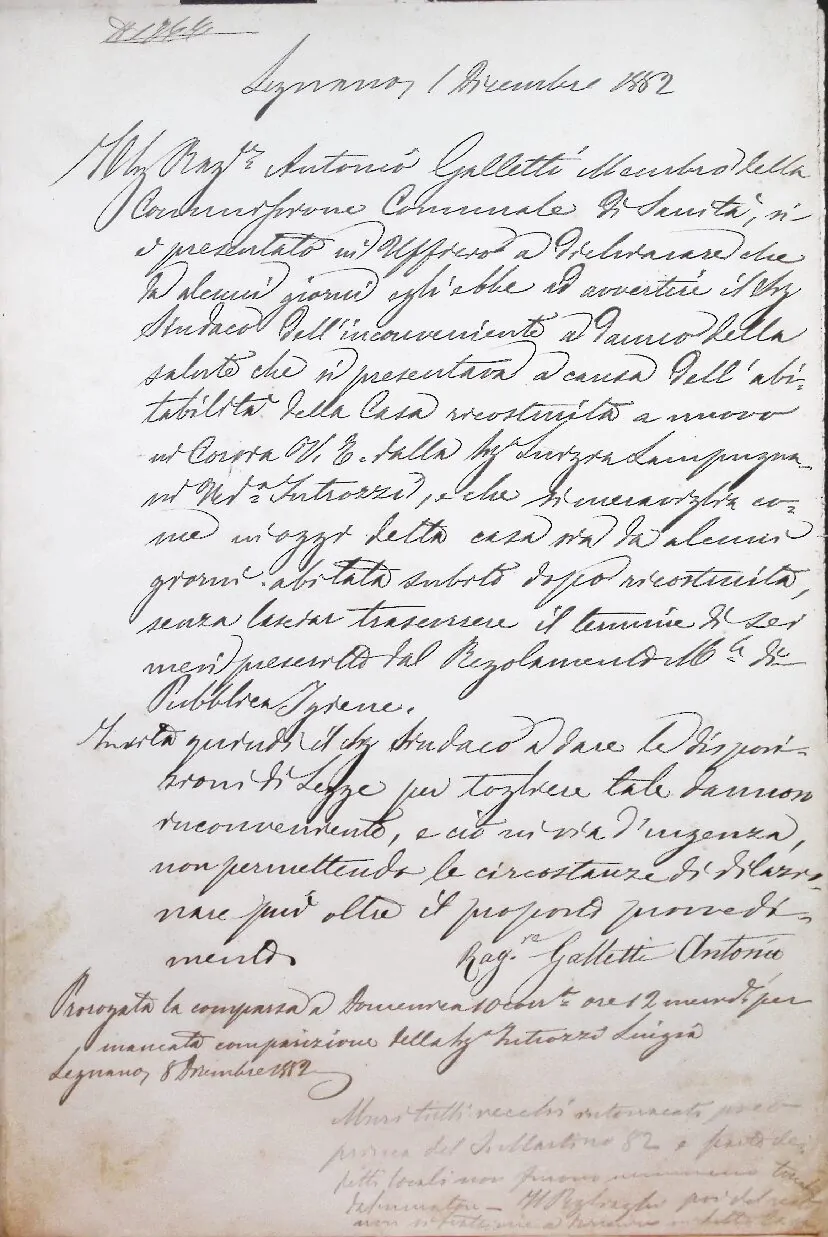 Legnano, 1 Dicembre 1882
Il Sig Rag.re Antonio Galletti Membro della
Commissione Comunale di Sanità, si
è presentato in Ufficio a dichiarare che
da alcuni giorni egli ebbe ad avvertire il Sig
Sindaco dell'inconveniente a danno della
salute che si presentava a causa dell'abi-
tabilità della Casa ricostruita a nuovo
in Corso V. E. dalla Sigª Luigia Lampugna-
ni Vedª Introzzi, e che si meraviglia co-
me in oggi detta casa sia da alcuni
giorni abitata subito dopo ricostruita,
senza lasciar trascorrere il termine di sei
mesi prescritto dal Regolamento M.le di
Pubblica Igiene.
Invita quindi il Sig Sindaco a dare le disposi-
zioni di Legge per togliere tale dannoso
inconveniente, e ciò in via d'urgenza,
non permettendo le circostanze di dilazio-
nare più oltre il proposto provvedi-
mento.
Rag.re Galletti Antonio
Prorogata la comparsa a Domenica 10 corr.te ore 12 merid. per
mancata comparizione della Sigª Introzzi Luigia
Legnano, 8 Dicembre 1882
Muri tutti vecchi intonacati
prima del S. Martino 82 e
locali non furono nemmeno